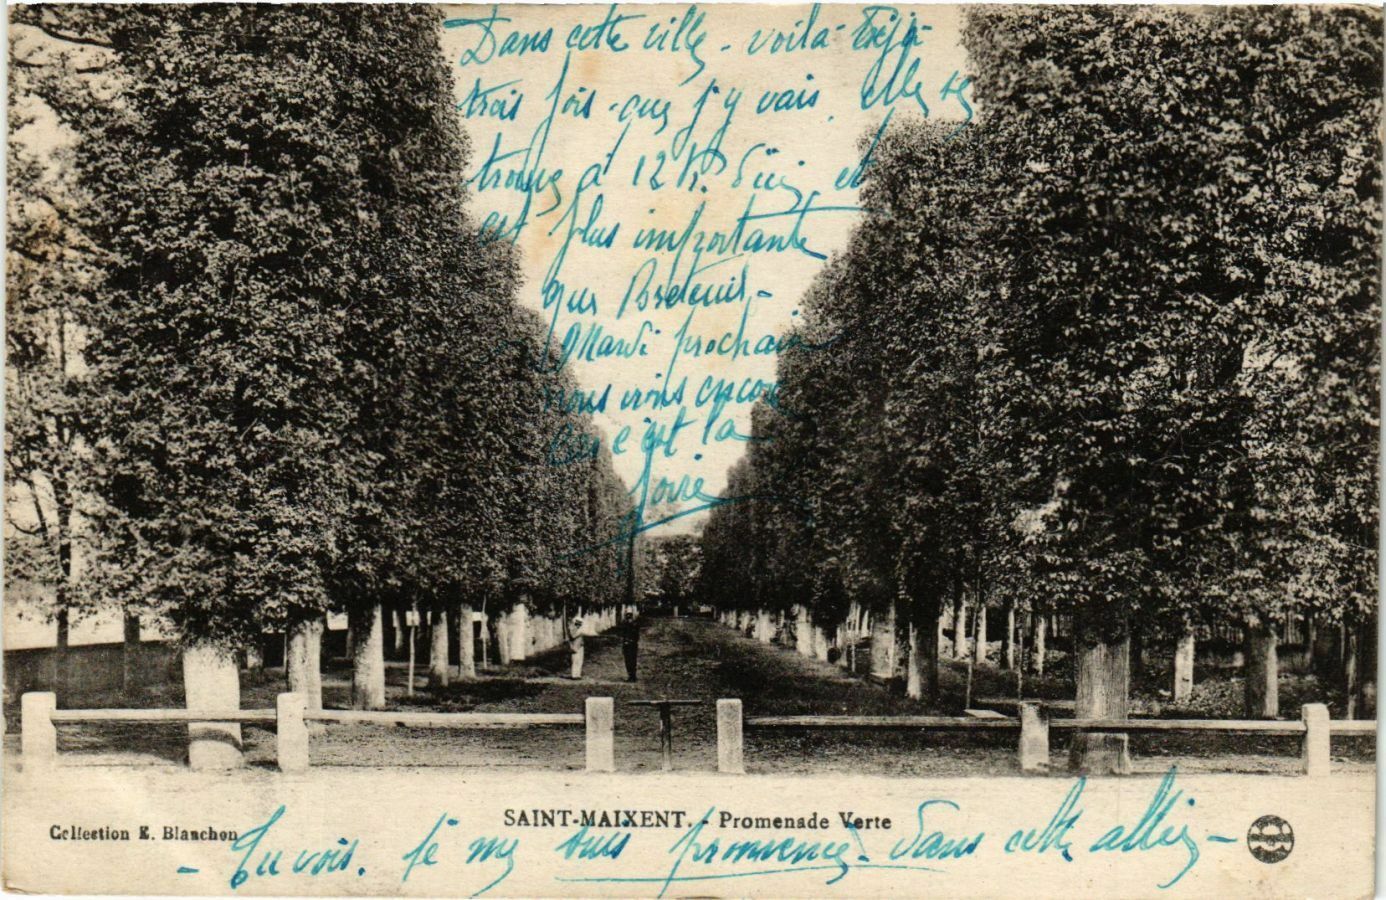 Dans cette ville - voilà déjà
trois fois que j'y vais. elle se
trouve à 12 K. d'ici, et
est plus importante
que
Mardi prochain
nous irons encore
car c'est la
foire
SAINT-MAIXENT. - Promenade Verte
Collection E. Blanchon
- Tu vois. je me suis promenée dans cette allée -